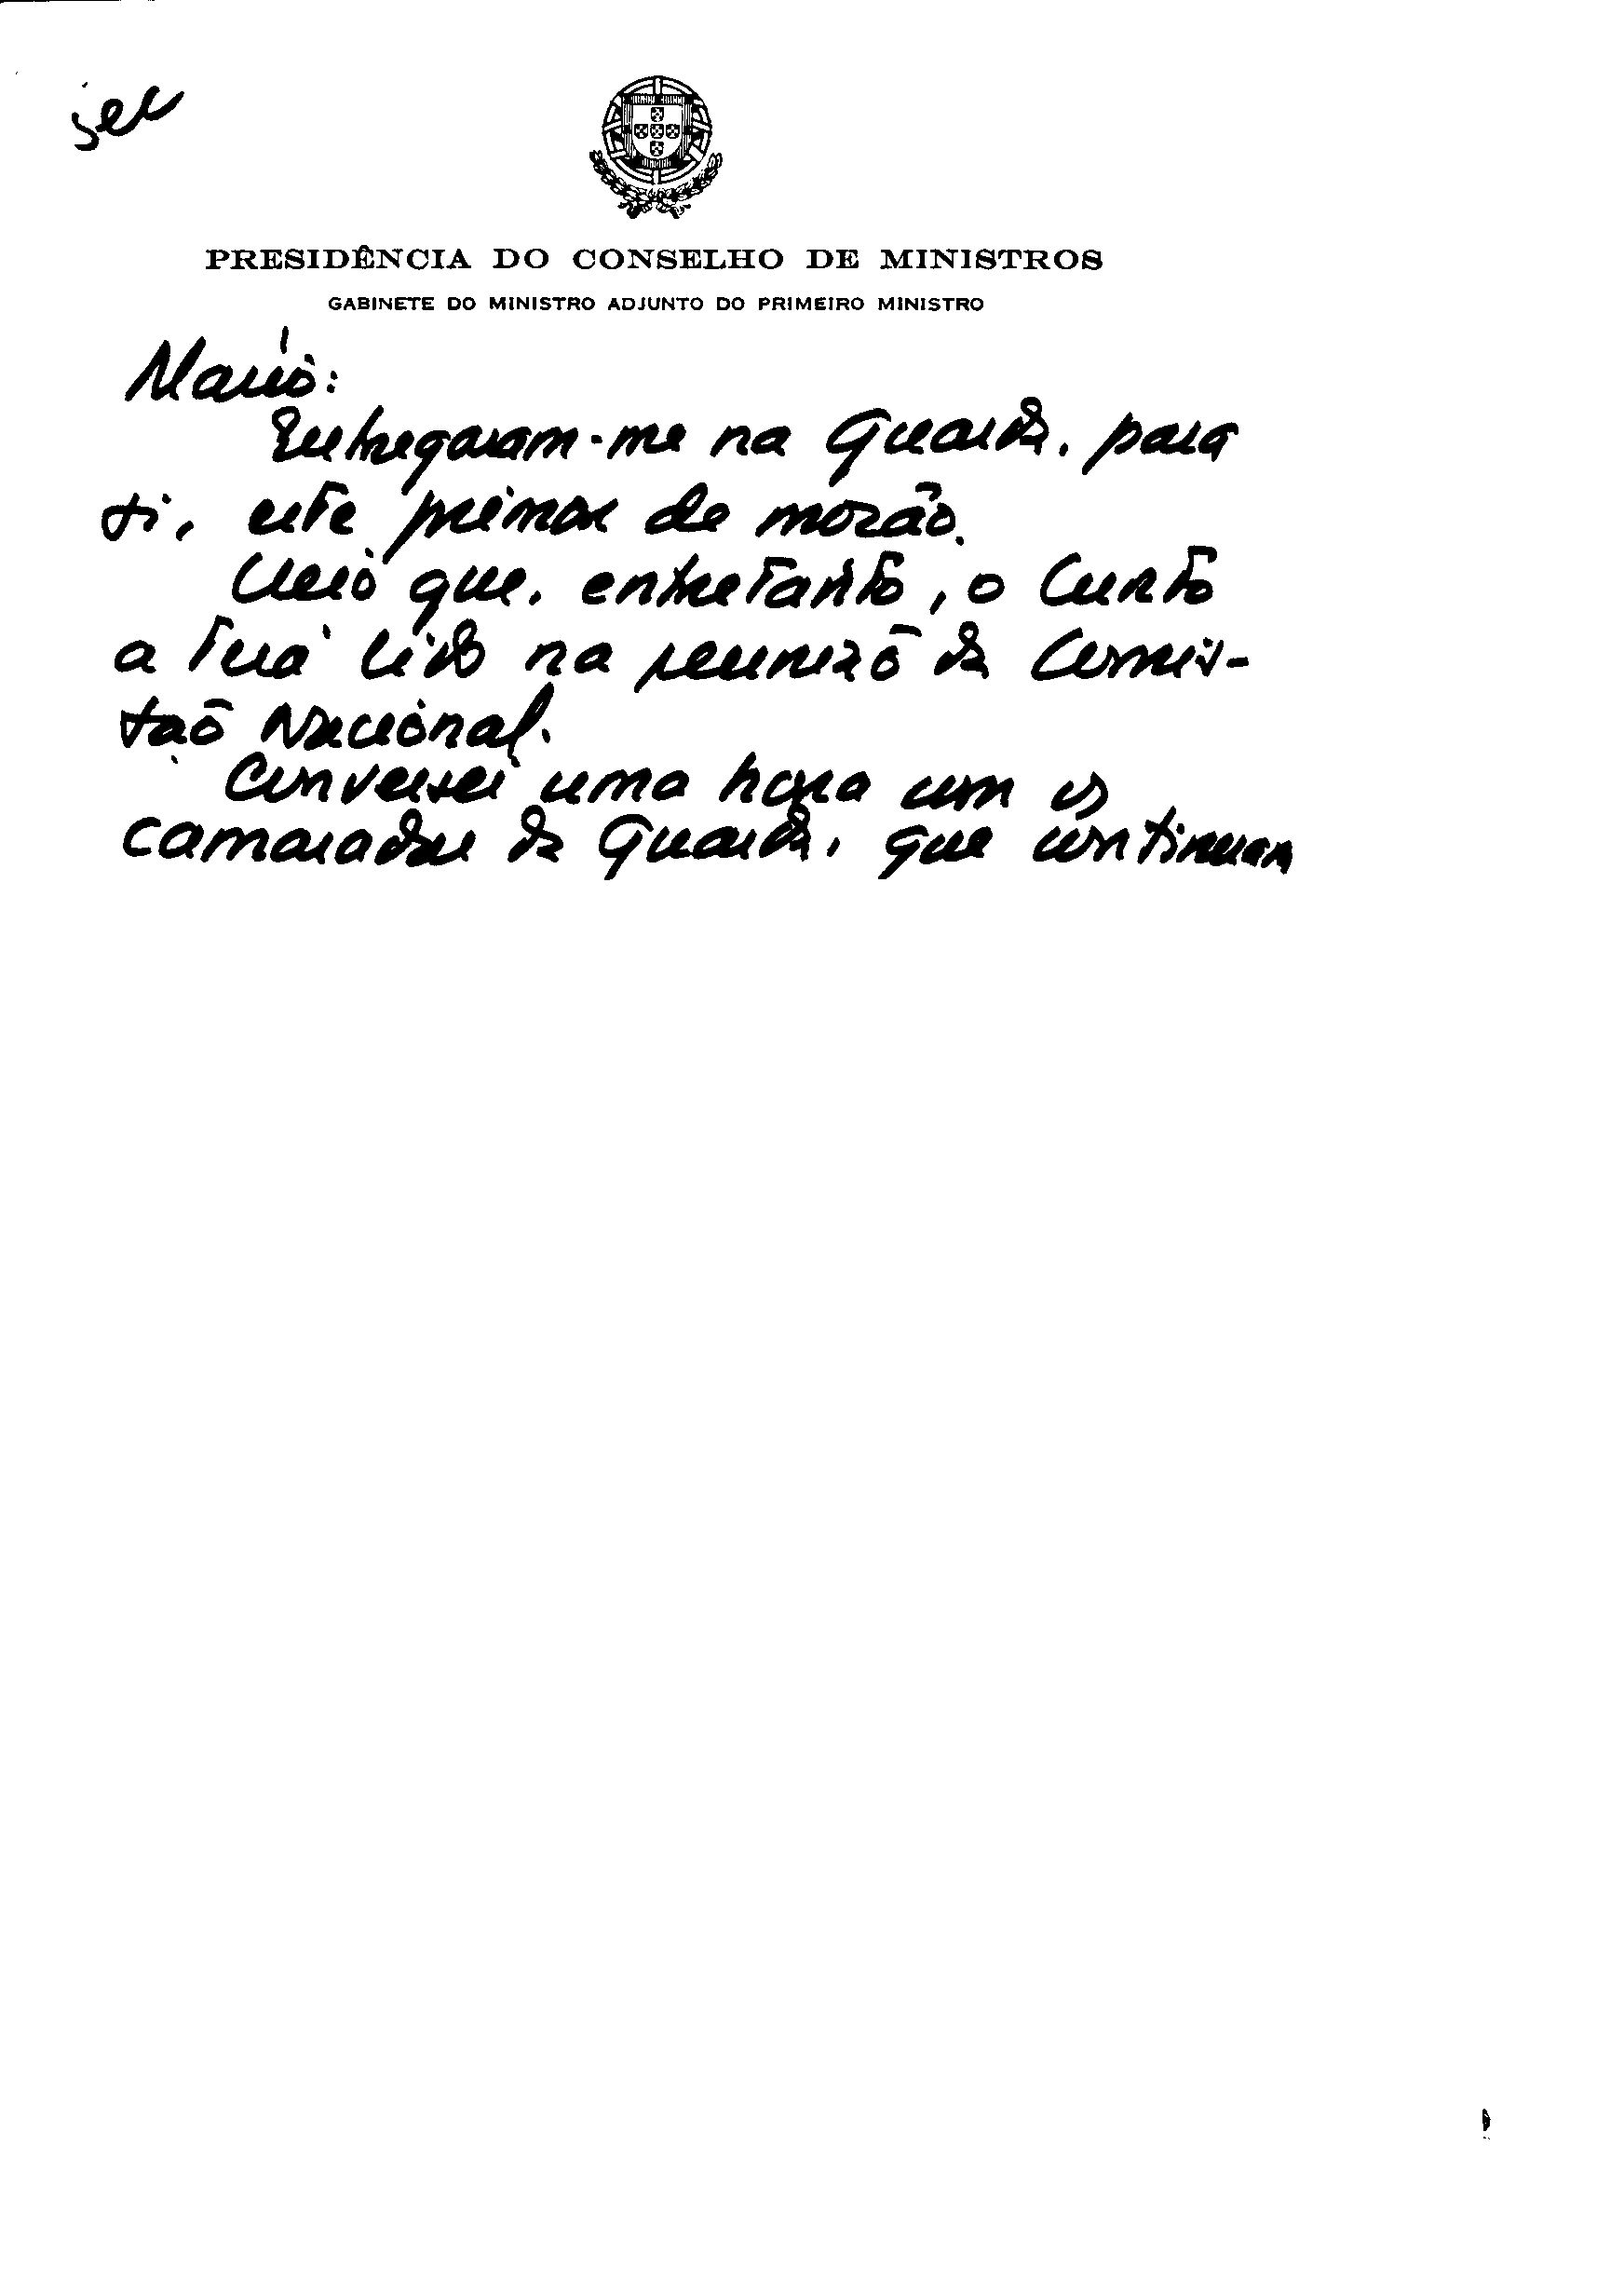 sec
PRESIDÊNCIA DO CONSELHO DE MINISTROS
GABINETE DO MINISTRO ADJUNTO DO PRIMEIRO MINISTRO
Mário:
Entregaram-me na Guarda, para
ti, este primor de moção.
Creio que, entretanto, o Cunto
a terá lido na reunião da Comis-
são Nacional.
Conversei uma hora com os
camaradas da Guarda, que continuam